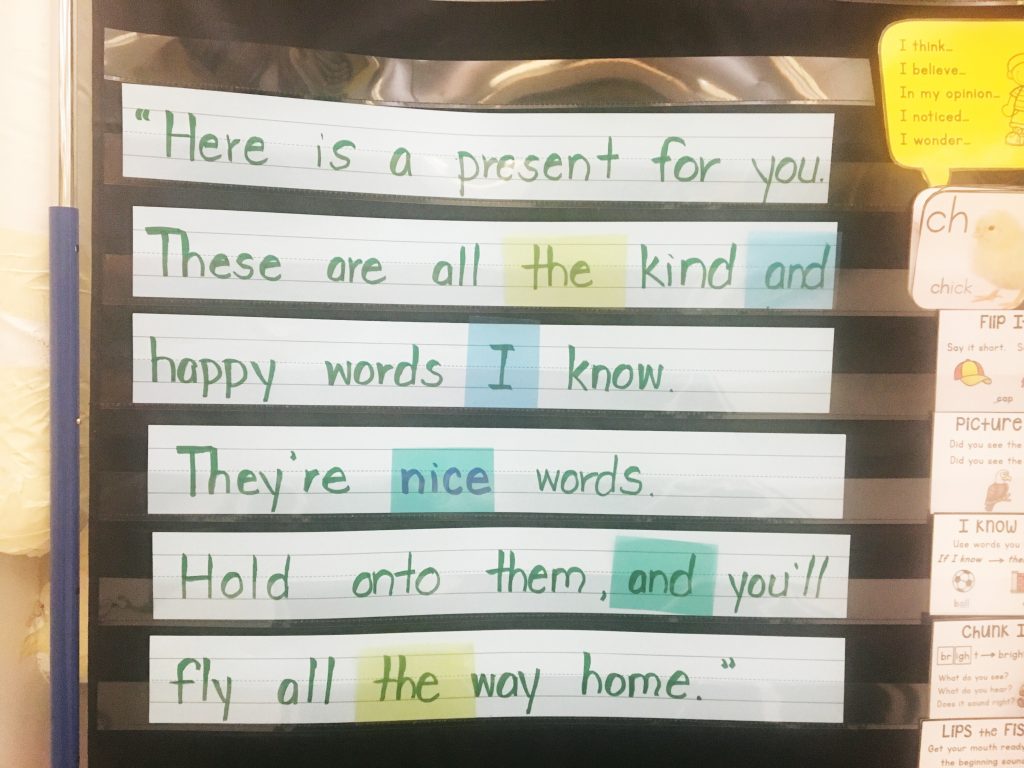 "Here is a present for you.
These are all the kind and
happy words I know.
They're nice words.
Hold onto them, and you'll
fly all the way home."
I think…
I believe…
In my opinion…
I noticed…
I wonder…
ch
chick
FLIP
Say it short.
cap
PICTURE
Did you see the
Did you see the
I KNOW
Use words you
If I know → the
ball
CHUNK
bright → brigh
What do you see?
What do you hear?
Does it sound right?
LIPS the FIS
Get your mouth ready
the beginning soun